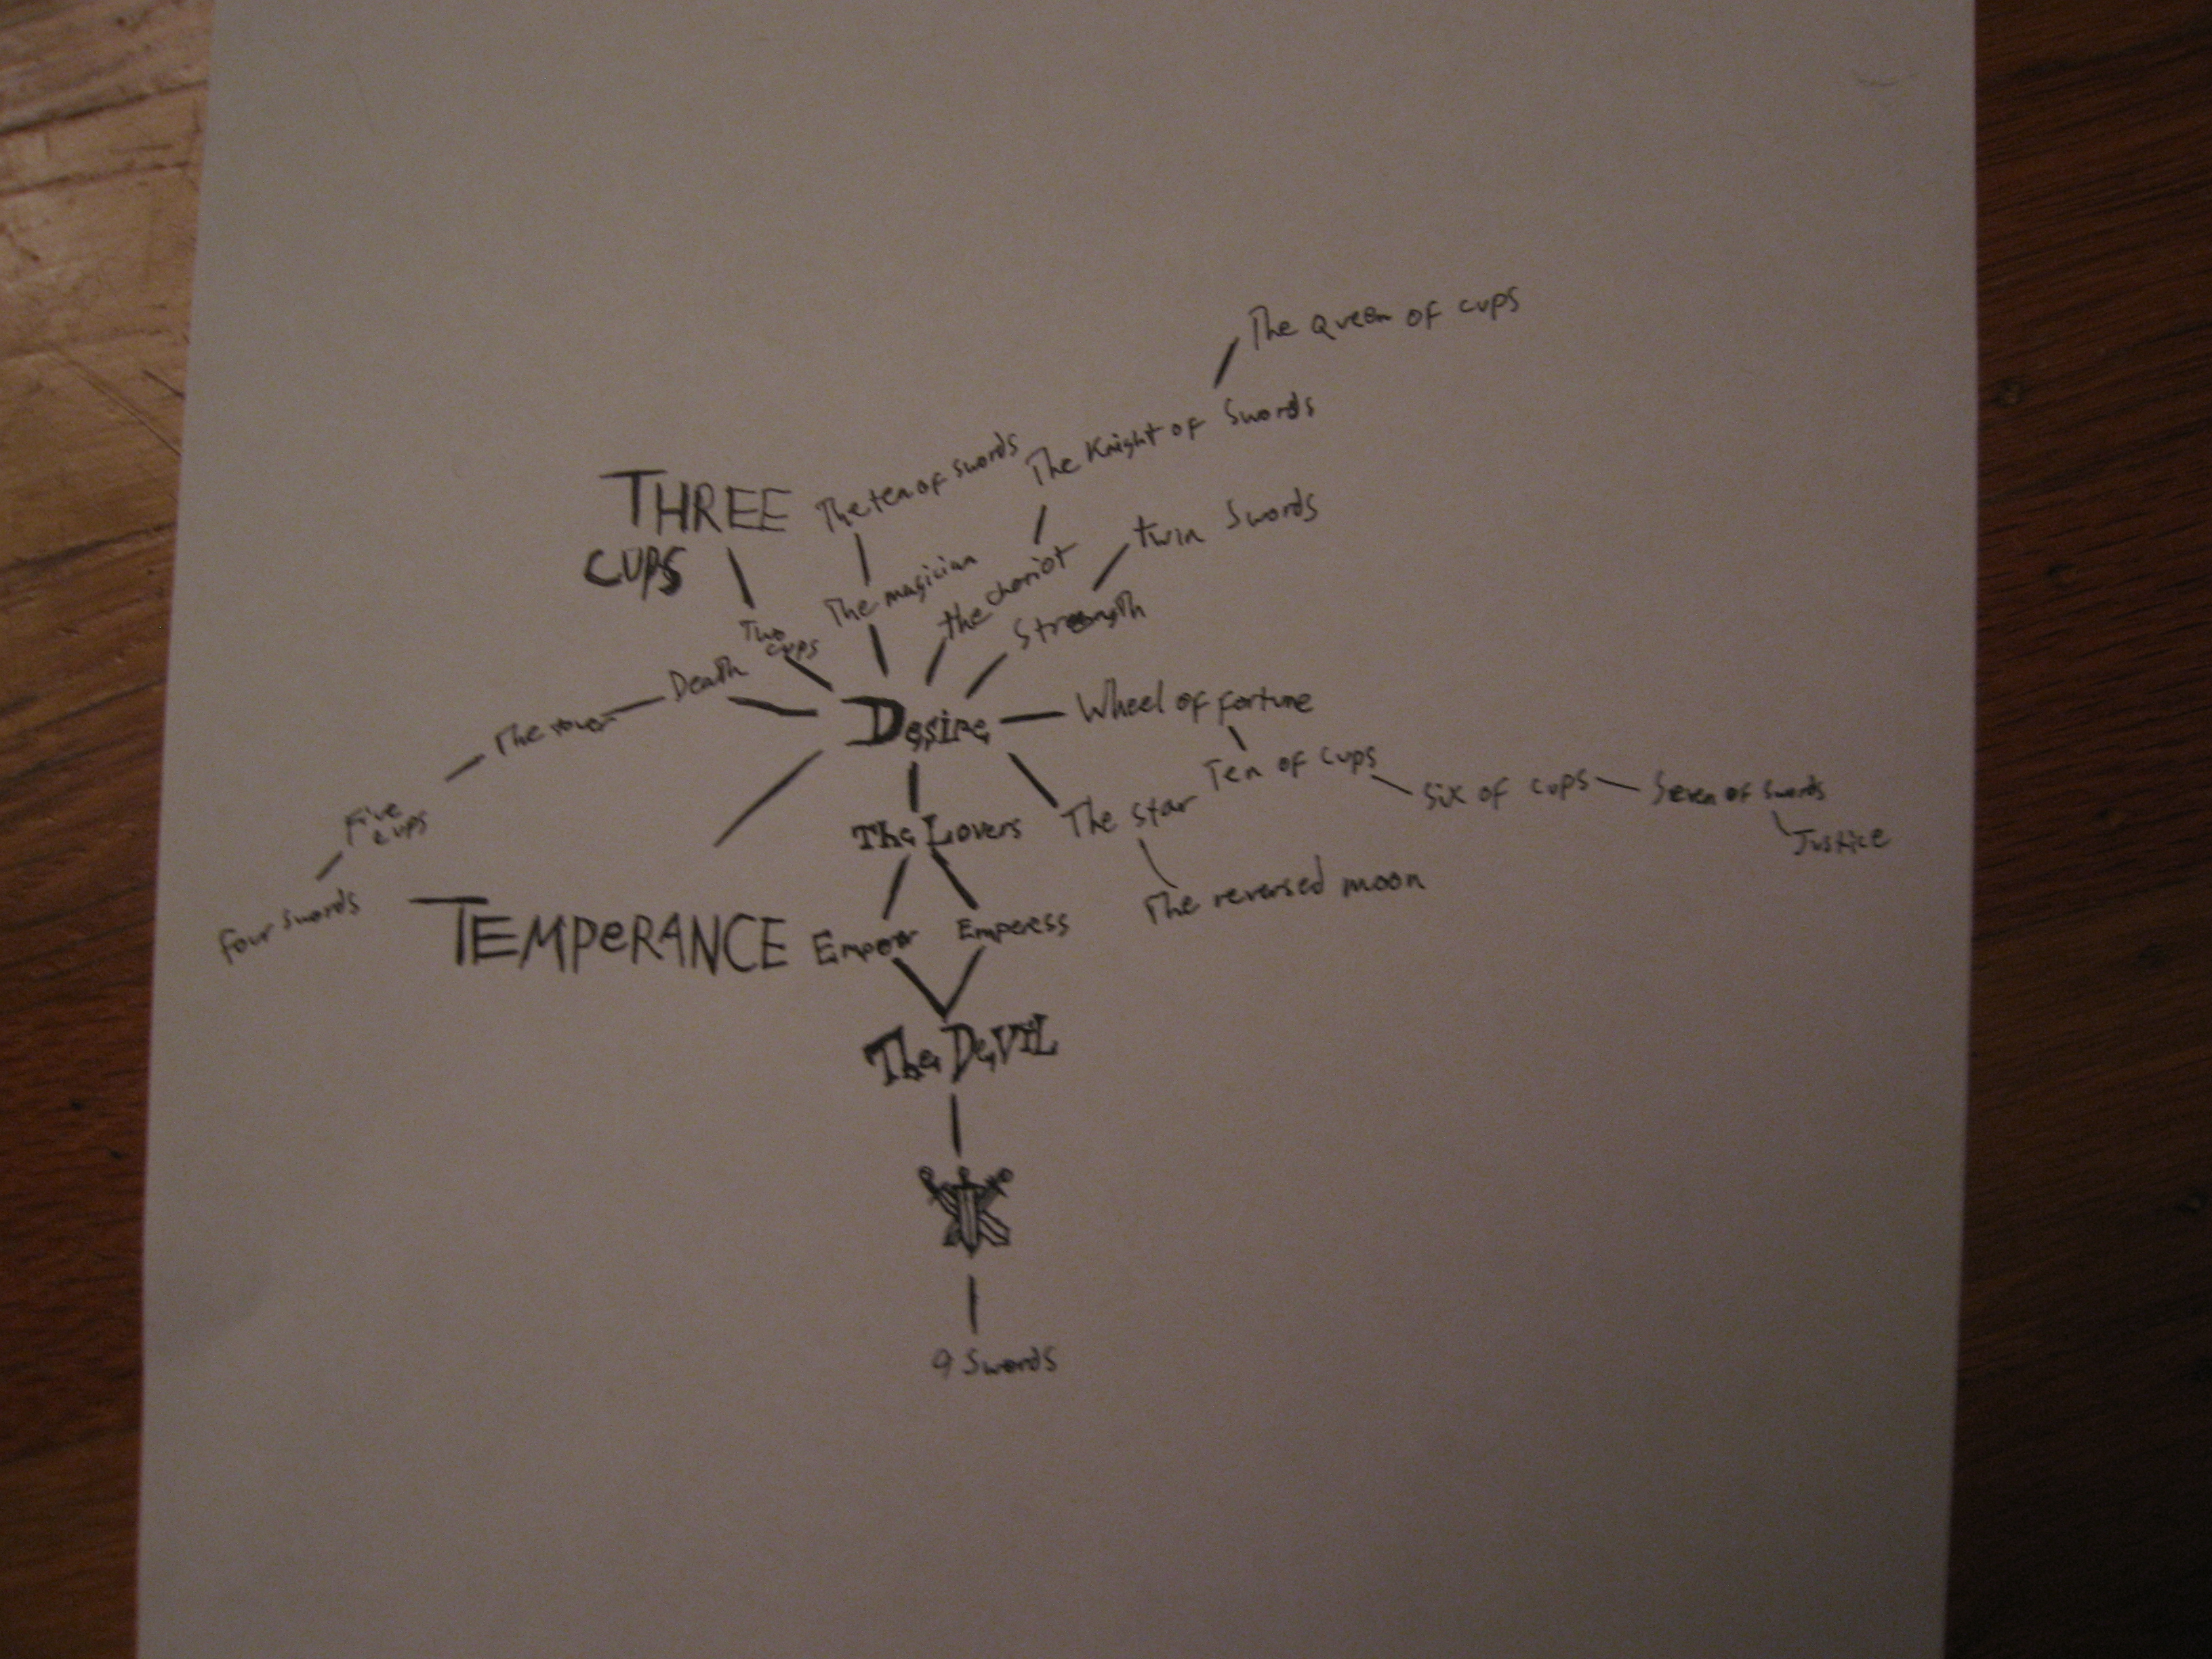 The Queen of cups
The Knight of Swords
The ten of swords
THREE
CUPS
twin Swords
The magician
the chariot
Strength
Two
cups
Death
The tower
Desire
Wheel of fortune
Ten of cups
Six of cups
Seven of Swords
Justice
The star
The Lovers
Five
cups
Four Swords
The reversed moon
TEMPeRANCE
Emperor
Emperess
The DeVIL
9 Swords